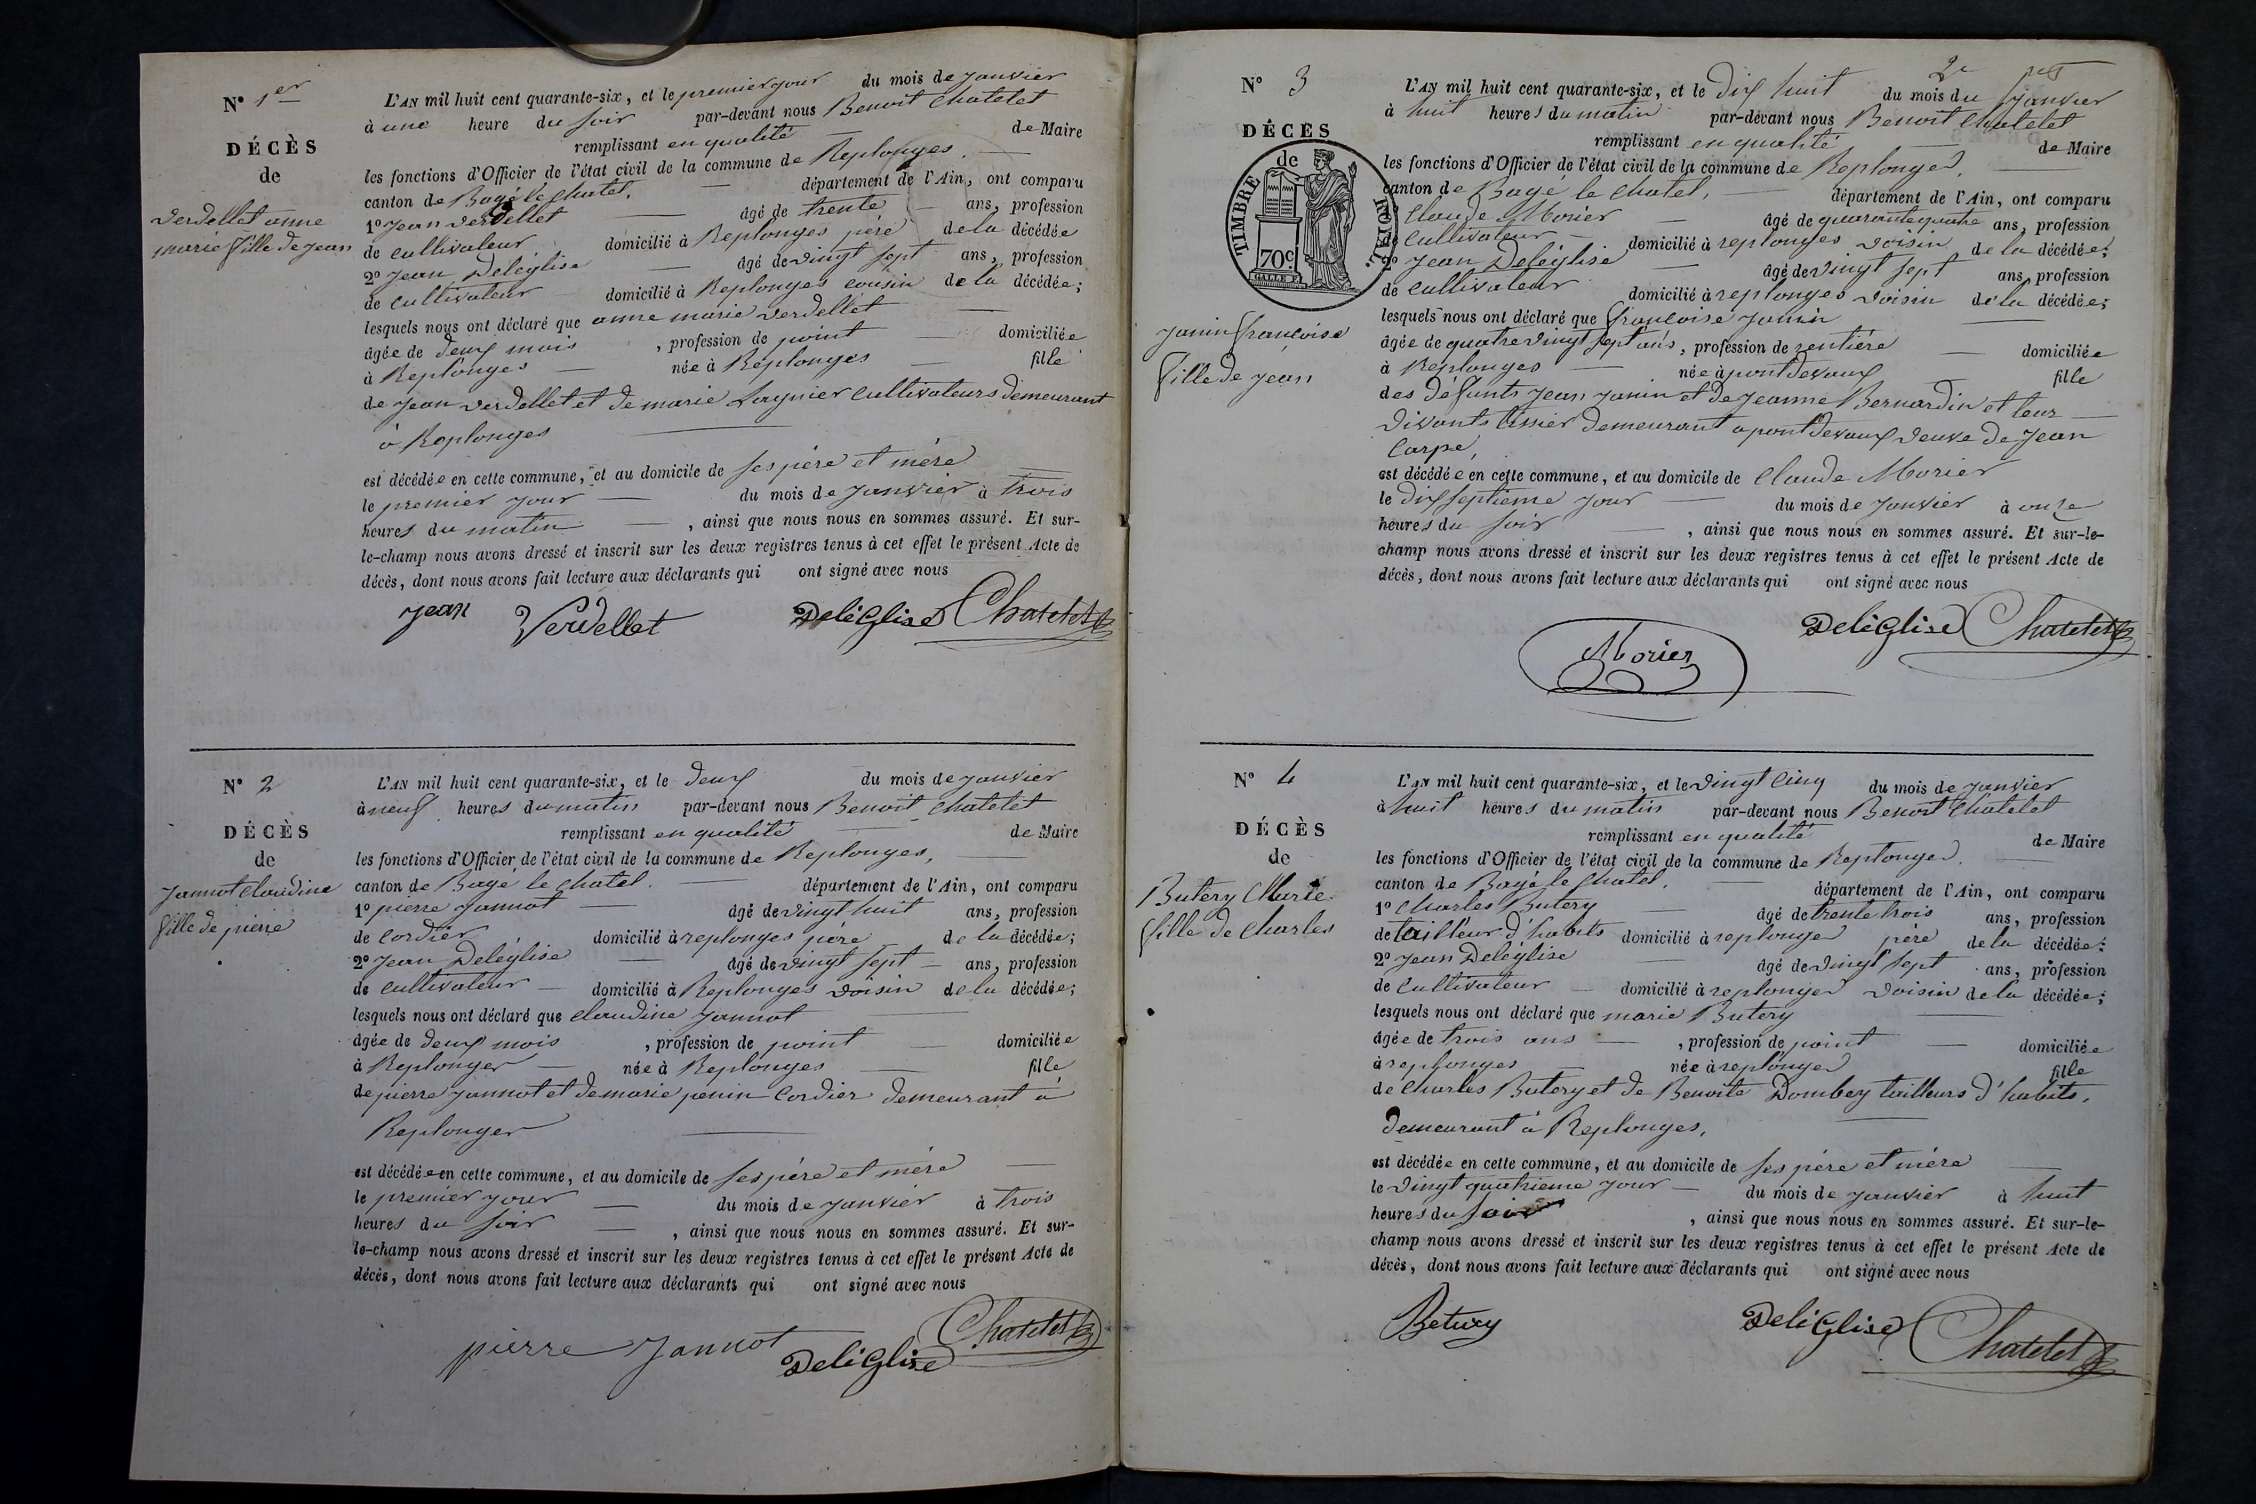 N° 1er
DÉCÈS
de
Verdellet anne
marie fille de jean
L'AN mil huit cent quarante-six, et le premier jour du mois de janvier
à une heure du soir par-devant nous Benoit Chatelet
remplissant en qualité de Maire
les fonctions d'Officier de l'état civil de la commune de Replonges.
canton de Bagé le Chatel. département de l'Ain, ont comparu
1° jean Verdellet âgé de trente ans, profession
de cultivateur domicilié à Replonges père de la décédée
2° jean Deléglise âgé de vingt sept ans, profession
de cultivateur domicilié à Replonges cousin de la décédée;
lesquels nous ont déclaré que anne marie Verdellet
âgée de deux mois, profession de point domiciliée
à Replonges née à Replonges fille
de jean Verdellet et de marie cultivateurs demeurant
à Replonges
est décédée en cette commune, et au domicile de ses père et mère
le premier jour du mois de janvier à trois
heures du matin, ainsi que nous nous en sommes assuré. Et sur-
le-champ nous avons dressé et inscrit sur les deux registres tenus à cet effet le présent Acte de
décès, dont nous avons fait lecture aux déclarants qui ont signé avec nous
jean Verdellet Deléglise Chatelet
N° 2
DÉCÈS
de
Jannot Claudine
fille de pierre
L'AN mil huit cent quarante-six, et le deux du mois de janvier
à neuf heures du matin par-devant nous Benoit Chatelet
remplissant en qualité de Maire
les fonctions d'Officier de l'état civil de la commune de Replonges,
canton de Bagé le Chatel. département de l'Ain, ont comparu
1° pierre Jannot âgé de vingt huit ans, profession
de cordier domicilié à replonges père de la décédée;
2° jean Deléglise âgé de vingt sept ans, profession
de cultivateur domicilié à Replonges voisin de la décédée;
lesquels nous ont déclaré que Claudine Jannot
âgée de deux mois, profession de point domiciliée
à Replonges née à Replonges fille
de pierre Jannot et de marie cordier demeurant à
Replonges
est décédée en cette commune, et au domicile de ses père et mère
le premier jour du mois de janvier à trois
heures du soir, ainsi que nous nous en sommes assuré. Et sur-
le-champ nous avons dressé et inscrit sur les deux registres tenus à cet effet le présent Acte de
décès, dont nous avons fait lecture aux déclarants qui ont signé avec nous
pierre Jannot Deléglise Chatelet
2e
N° 3
DÉCÈS
de
TIMBRE ROYAL.
70c
Janin françoise
fille de jean
L'AN mil huit cent quarante-six, et le dix huit du mois du janvier
à huit heures du matin par-devant nous Benoit Chatelet
remplissant en qualité de Maire
les fonctions d'Officier de l'état civil de la commune de Replonges.
canton de Bagé le Chatel. département de l'Ain, ont comparu
Claude Morier âgé de quarante quatre ans, profession
de cultivateur domicilié à replonges voisin de la décédée;
2° jean Deléglise âgé de vingt sept ans, profession
de cultivateur domicilié à replonges voisin de la décédée;
lesquels nous ont déclaré que françoise janin
âgée de quatre vingt sept ans, profession de rentière domiciliée
à Replonges née à pont de vaux fille
des défunts jean janin et de jeanne Bernardin et leur
vivants tissier demeurant a pont de vaux veuve de jean
Carpe,
est décédée en cette commune, et au domicile de Claude Morier
le dix septième jour du mois de janvier à onze
heures du soir, ainsi que nous nous en sommes assuré. Et sur-le-
champ nous avons dressé et inscrit sur les deux registres tenus à cet effet le présent Acte de
décès, dont nous avons fait lecture aux déclarants qui ont signé avec nous
Deléglise Chatelet
Morier
N° 4
DÉCÈS
de
Butery Marie
fille de Charles
L'AN mil huit cent quarante-six, et le vingt cinq du mois de janvier
à huit heures du matin par-devant nous Benoit Chatelet
remplissant en qualité de Maire
les fonctions d'Officier de l'état civil de la commune de Replonges.
canton de Bagé le Chatel. département de l'Ain, ont comparu
1° Charles Butery âgé de trente trois ans, profession
de tailleur d'habits domicilié à replonges père de la décédée;
2° jean Deléglise âgé de vingt sept ans, profession
de cultivateur domicilié à replonges voisin de la décédée;
lesquels nous ont déclaré que marie Butery
âgée de trois ans, profession de point domiciliée
à replonges née à replonges fille
de Charles Butery et de Benoite Dombey tailleurs d'habits,
demeurant à Replonges.
est décédée en cette commune, et au domicile de ses père et mère
le vingt quatrieme jour du mois de janvier à huit
heures du soir, ainsi que nous nous en sommes assuré. Et sur-le-
champ nous avons dressé et inscrit sur les deux registres tenus à cet effet le présent Acte de
décès, dont nous avons fait lecture aux déclarants qui ont signé avec nous
Betury Deléglise Chatelet